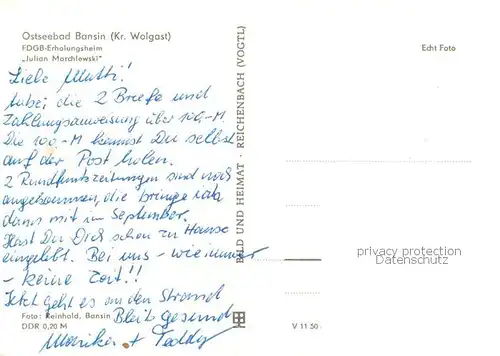 Ostseebad Bansin (Kr. Wolgast)
FDGB-Erholungsheim
„Julian Marchlewski"
Echt Foto
Liebe Mutti!
Anbei die 2 Briefe und
Zahlungsanweisung über 100,-M.
Die 100,-M kannst Du selbst
auf der Post holen.
2 Rundfunkzeitungen sind noch
angekommen, die bringe ich
dann mit im September.
Hast Du Dich schon zu Hause
eingelebt. Bei uns - wie immer
- keine Zeit!!
Jetzt geht es an den Strand
Bleib gesund
Marika + Teddy
Foto: Reinhold, Bansin
DDR 0,20 M
BILD UND HEIMAT · REICHENBACH (VOGTL)
V 11 50
privacy protection
Datenschutz